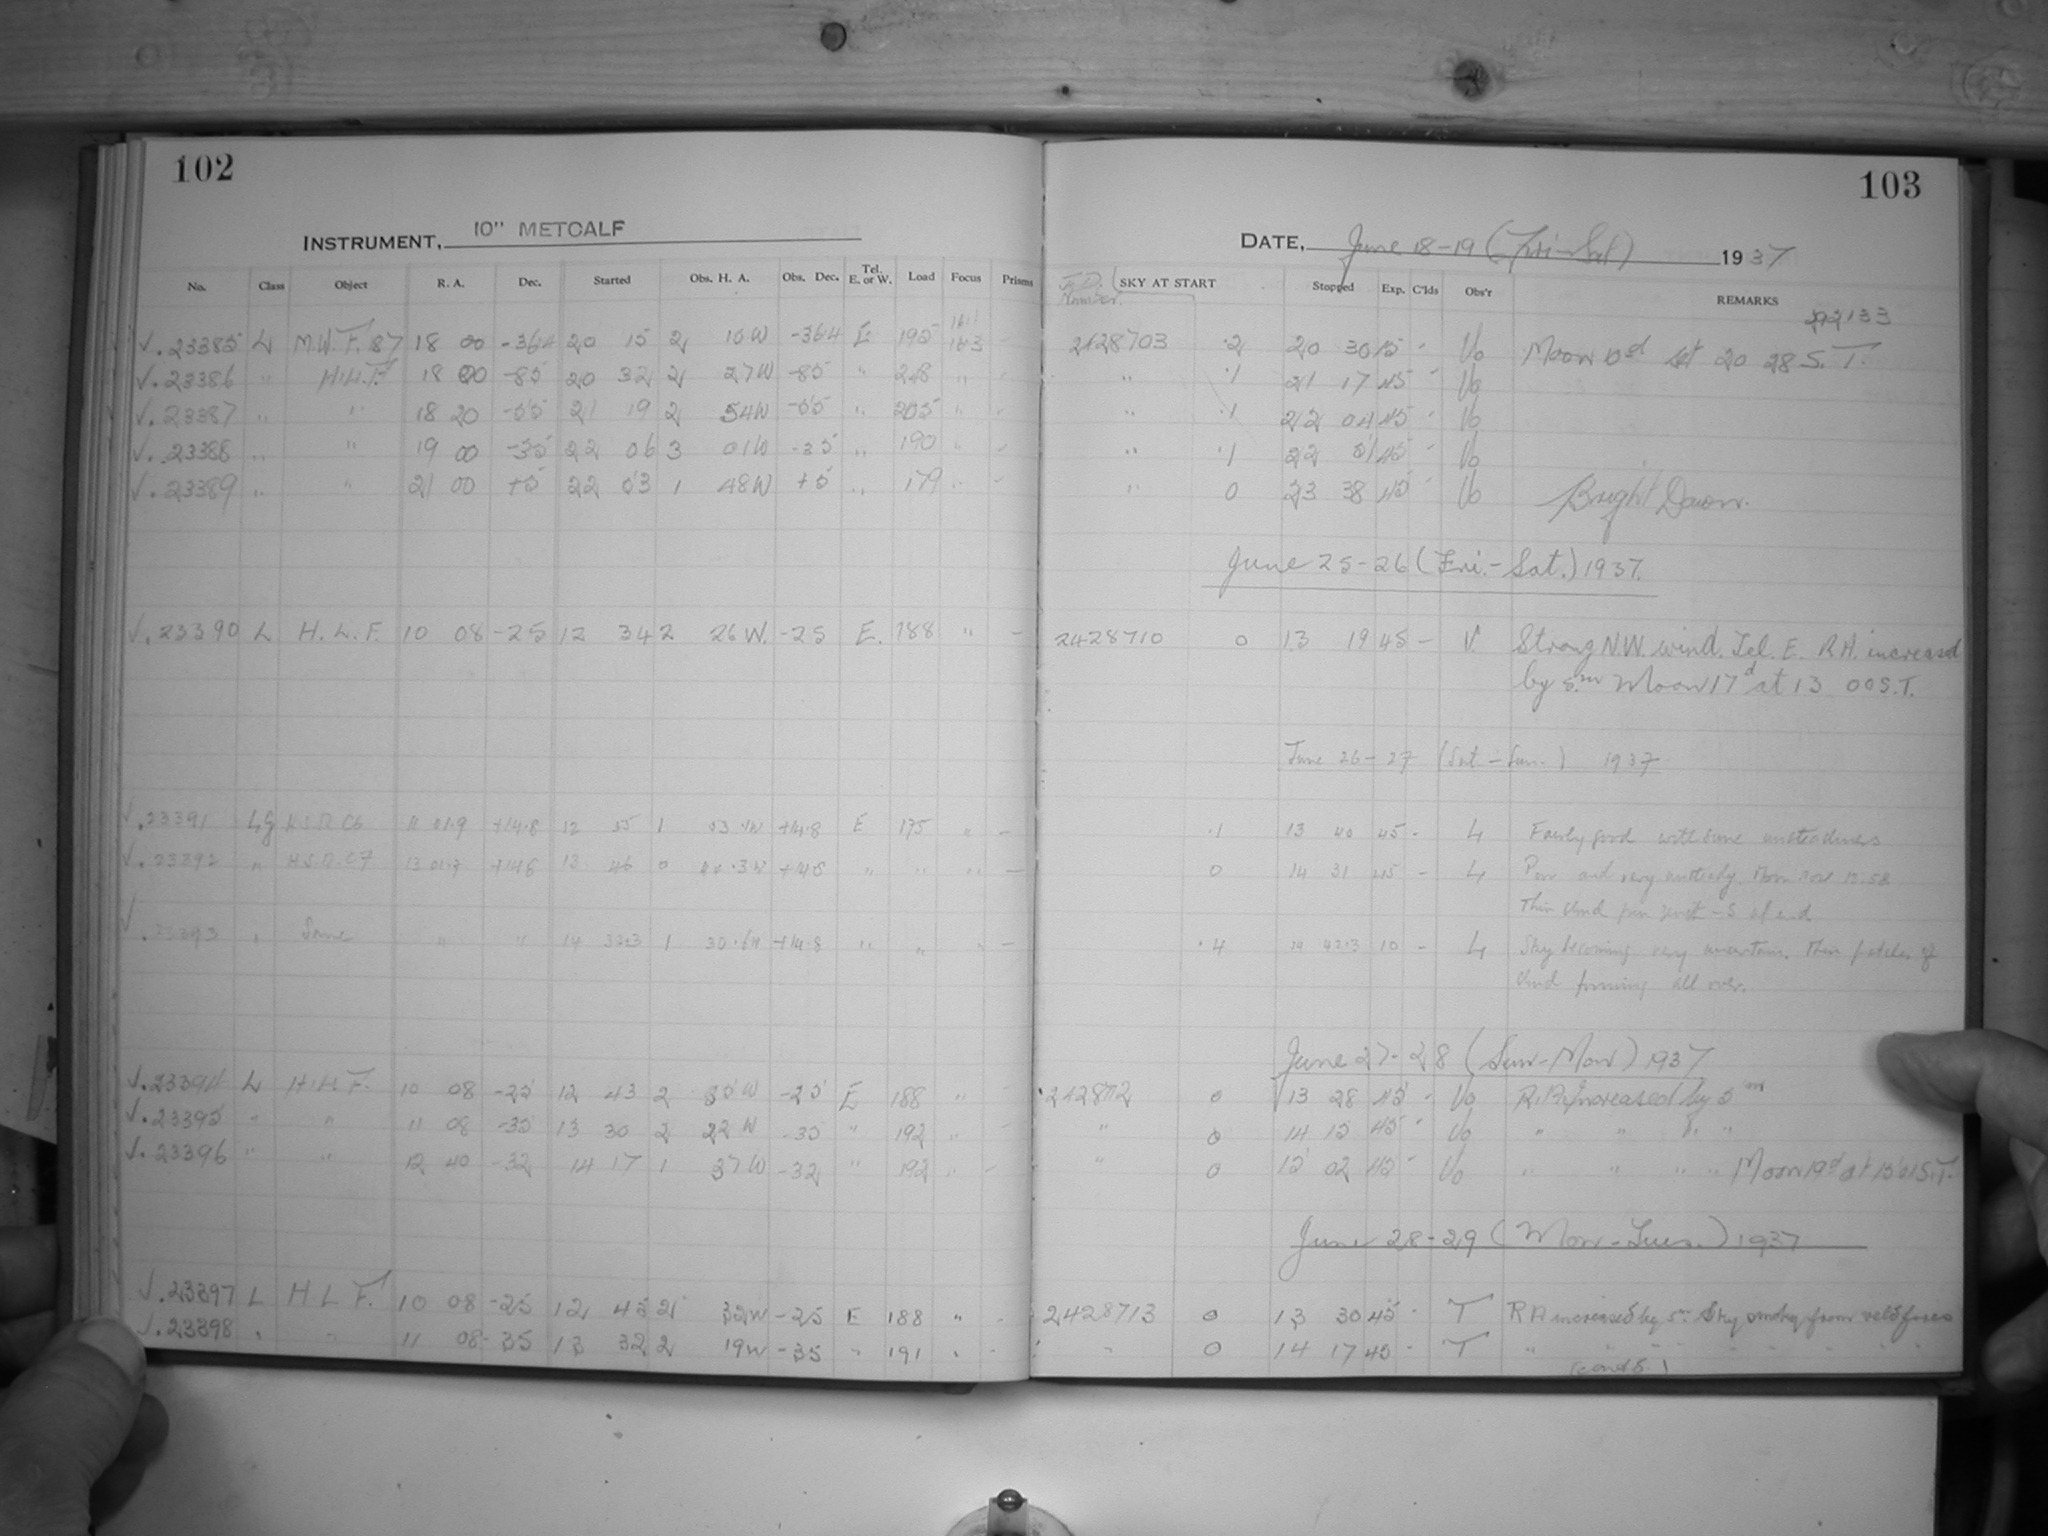 102
INSTRUMENT, 10" METCALF
No. Class Object R. A. Dec. Started Obs. H. A. Obs. Dec. Tel. E. or W. Load Focus Prisms
√. 23385 L M.W.F. 87 18 00 -36.4 20 15 2 10W -36.4 E 195 163 -
√. 23386 " H.L.F. 18 00 -85 20 32 2 27W -85 " 248 " -
√. 23387 " " 18 20 -55 21 19 2 54W -55 " 205 " -
√. 23388 " " 19 00 -35 22 06 3 01W -35 " 190 " -
√. 23389 " " 21 00 +5 22 53 1 48W +5 " 179 " -
√. 23390 L H. L. F. 10 08 -25 12 34 2 26 W. -25 E. 188 " -
√. 23391 LG H.S.R. C6 11 01.9 +14.8 12 55 1 53.1W +14.8 E 175 " -
√. 23392 " H.S.R. C7 13 01.7 +14.8 13 46 0 44.3W +14.8 " " " -
√. 23393 " Same " " 14 32.3 1 30.6W +14.8 " " " -
√. 23394 L H.L.F. 10 08 -25 12 43 2 35W -25 E 188 "
√. 23395 " " 11 08 -35 13 30 2 22W -35 " 192 " -
√. 23396 " " 12 40 -32 14 17 1 37W -32 " 192 " -
√. 23397 L H L F. 10 08 -25 12 45 2 32W -25 E 188 " -
√. 23398 " " 11 08 -35 13 32 2 19W -35 " 191 " -
103
DATE, June 18-19 (Fri-Sat) 1937
J.D. Number. SKY AT START Stopped Exp. C'lds Obs'r REMARKS
2428703 .2 20 30 15 - Vo Moon 10d set 20 28 S.T.
" .1 21 17 45 - Vo
" .1 22 04 45 - Vo
" .1 22 51 45 - Vo
" 0 23 38 45 - Vo Bright Dawn.
June 25-26 (Fri.-Sat.) 1937.
2428710 0 13 19 45 - V. Strong N.W. wind. Tel. E. R.A. increased
by 5m Moon 17d at 13 00 S.T.
June 26-27 (Sat-Sun.) 1937
.1 13 40 45 - L Fairly good with some unsteadiness
0 14 31 45 - L Poor and very unsteady. Moon rose 13.58
Thin cloud from
.4 14 42.3 10 - L Sky becoming very uncertain. Thin patches of
cloud forming all over.
June 27-28 (Sun-Mon) 1937
242872 0 13 28 45 - Vo R.A. Increased by 5m
" 0 14 15 45 - Vo " " " "
" 0 15 02 45 - Vo " " " " Moon 19d at 15 01 S.T.
June 28-29 (Mon-Tues.) 1937
2428713 0 13 30 45 - T RA increased by 5m Sky smoky from veld fires
" 0 14 17 45 - T " " " " " " "
(cont'd.)